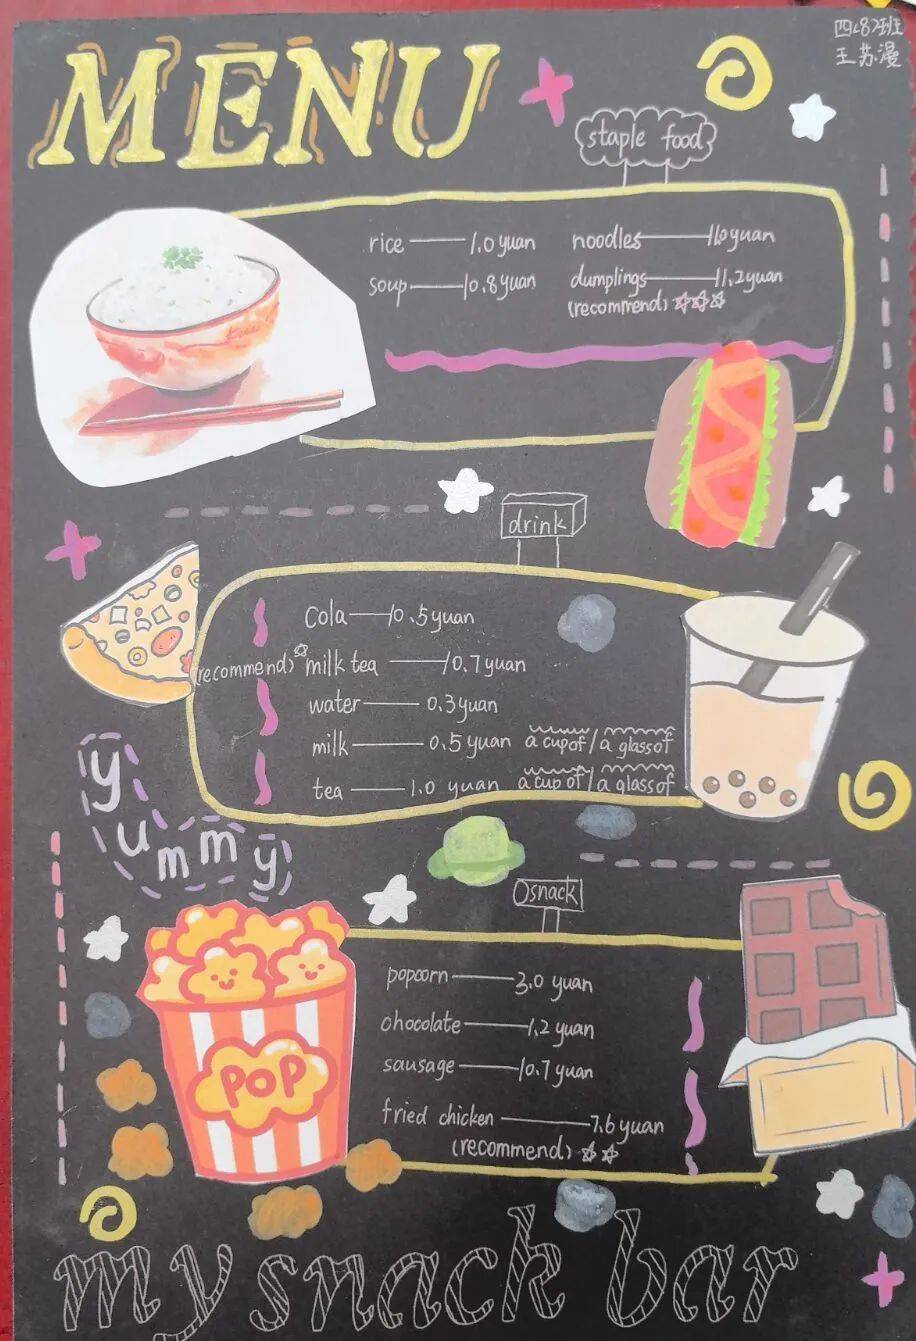 MENU
四(8)班
王苏漫
staple food
rice——1.0yuan noodles——yuan
soup——10.8yuan dumplings——11.2yuan
(recommend)
drink
Cola——10.5yuan
(recommend) milk tea——10.7yuan
water——0.3yuan
milk——0.5yuan a cup of/a glass of
tea——1.0 yuan a cup of/a glass of
yummy
Osnack
popcorn——3.0 yuan
chocolate——1.2yuan
sausage——10.7yuan
fried chicken——7.6yuan
(recommend)
POP
my snack bar